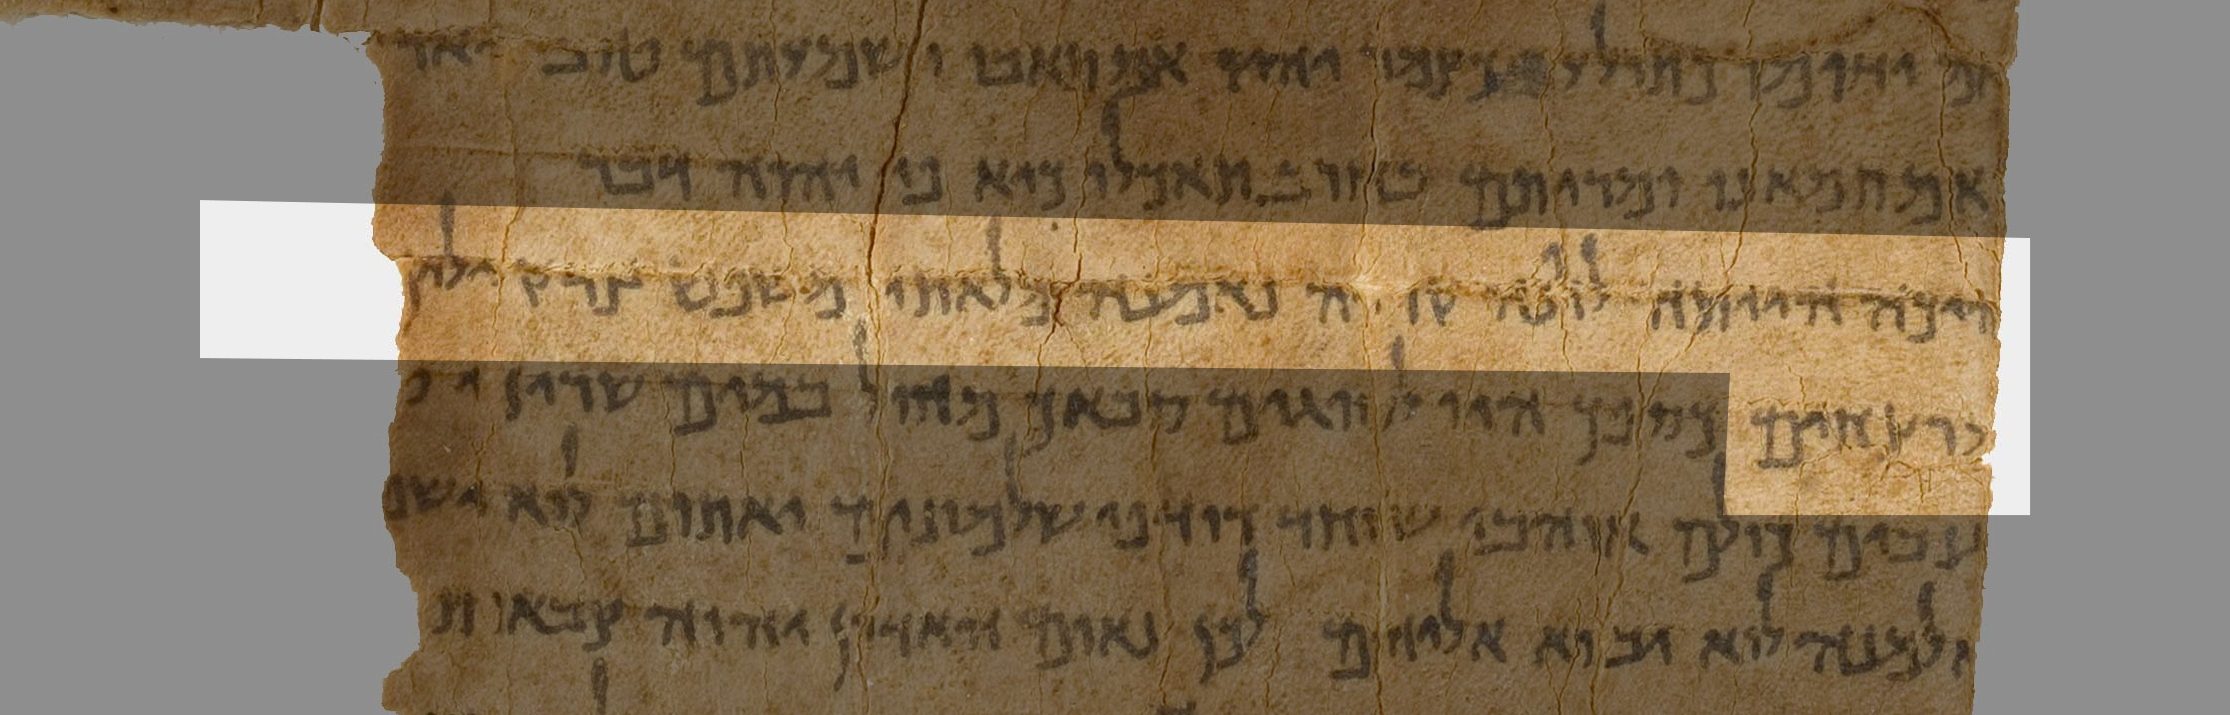 אם יאדימו כתולע כצמר יהיו אם תואבו ושמעתם טוב האר
אם תמאנו ומריתם בחרב תאכלו כיא פי יהוה דבר
איכה הייתה לזונה קריה נאמנה מלאתי משפט צדק ילין
מרצחים כספך היו לסיגים סבאך מהול במים שריך
גנבים כולם אוהבי שוחד רודפי שלמונים יאתום לוא ישפ
אלמנה לוא יבוא אליהם לכן נאום האדון יהוה צבאות